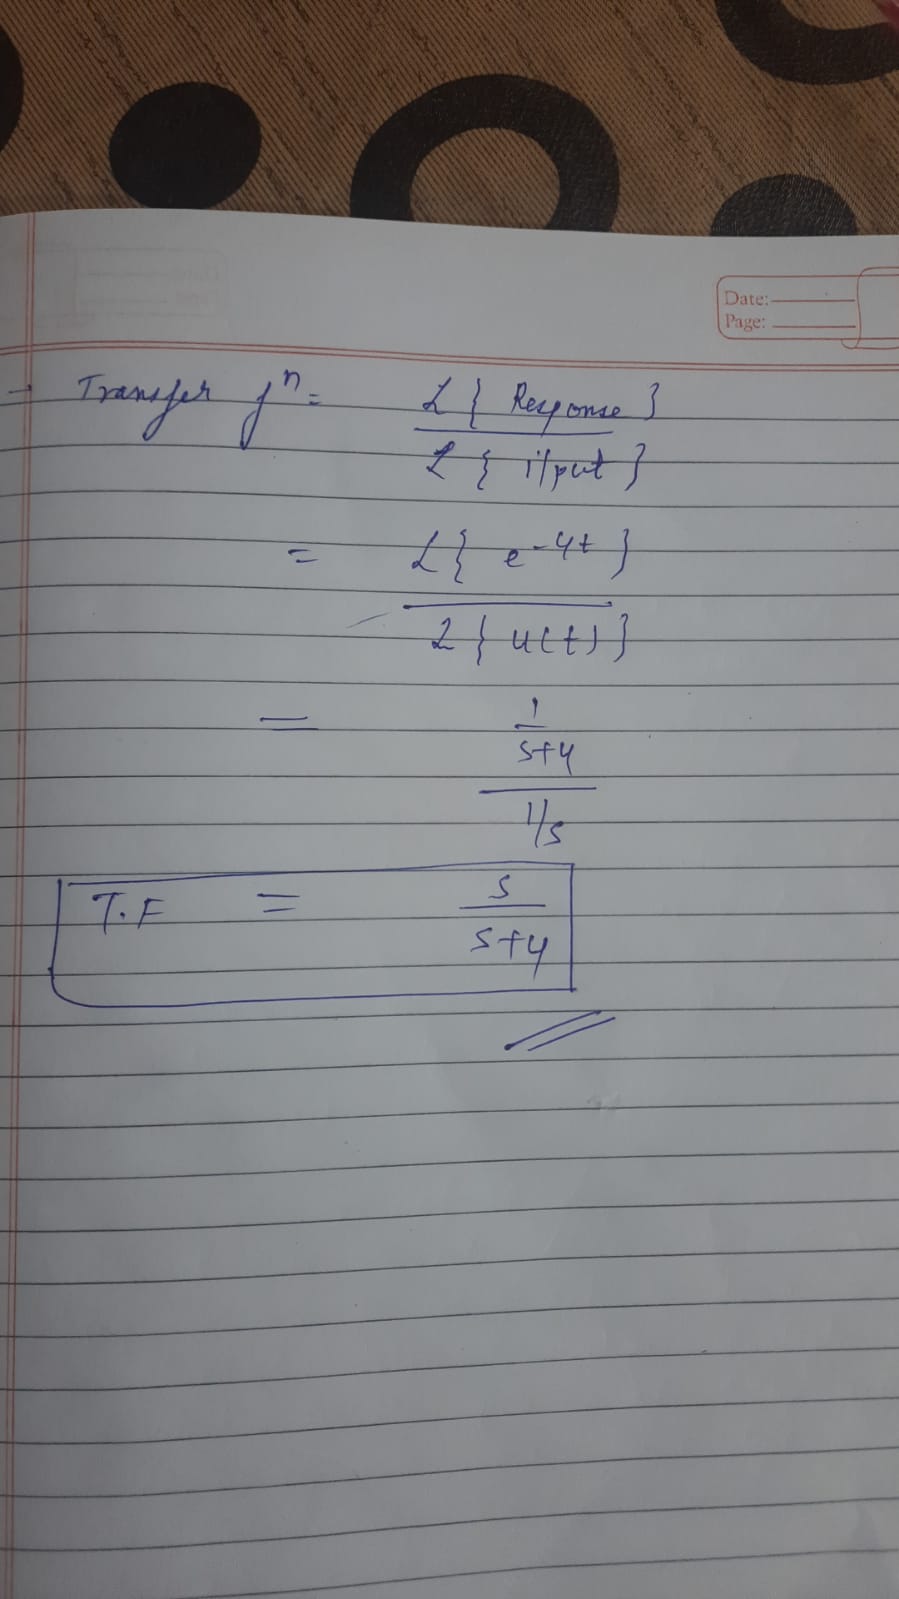 Date:
Page:
→ Transfer fⁿ = L { Response }
L { i/put }
= L { e^-4t }
L { u(t) }
= 1
s+4
1/s
T.F = s
s+4